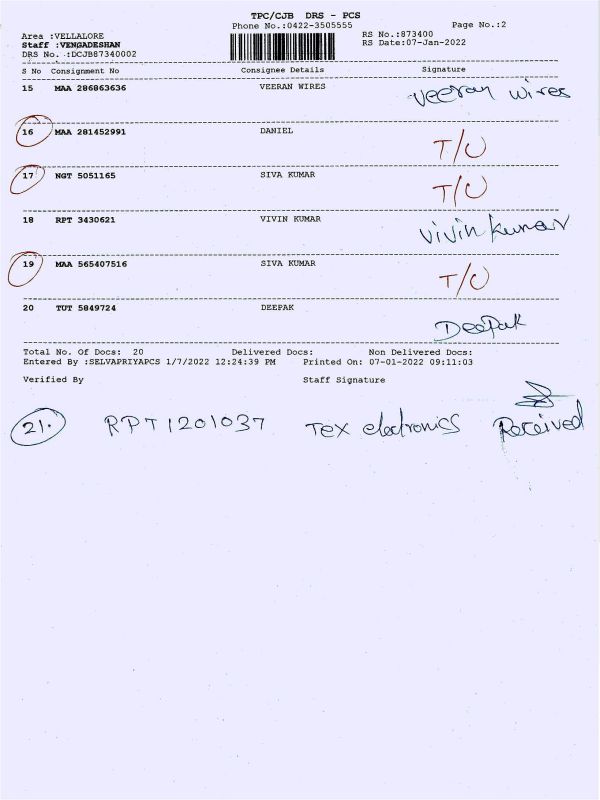 TPC/CJB DRS - PCS
Phone No.:0422-3505555
Page No.:2
Area :VELLALORE
RS No.:873400
Staff :VENGADESHAN
RS Date:07-Jan-2022
DRS No. :DCJB87340002
S No Consignment No Consignee Details Signature
15 MAA 286863636 VEERAN WIRES Veeran wires
16 MAA 281452991 DANIEL T/U
17 NGT 5051165 SIVA KUMAR T/U
18 RPT 3430621 VIVIN KUMAR Vivin kumar
19 MAA 565407516 SIVA KUMAR T/U
20 TUT 5849724 DEEPAK Deepak
Total No. Of Docs: 20 Delivered Docs: Non Delivered Docs:
Entered By :SELVAPRIYAPCS 1/7/2022 12:24:39 PM Printed On: 07-01-2022 09:11:03
Verified By Staff Signature
21. RPT1201037 Tex electronics Received